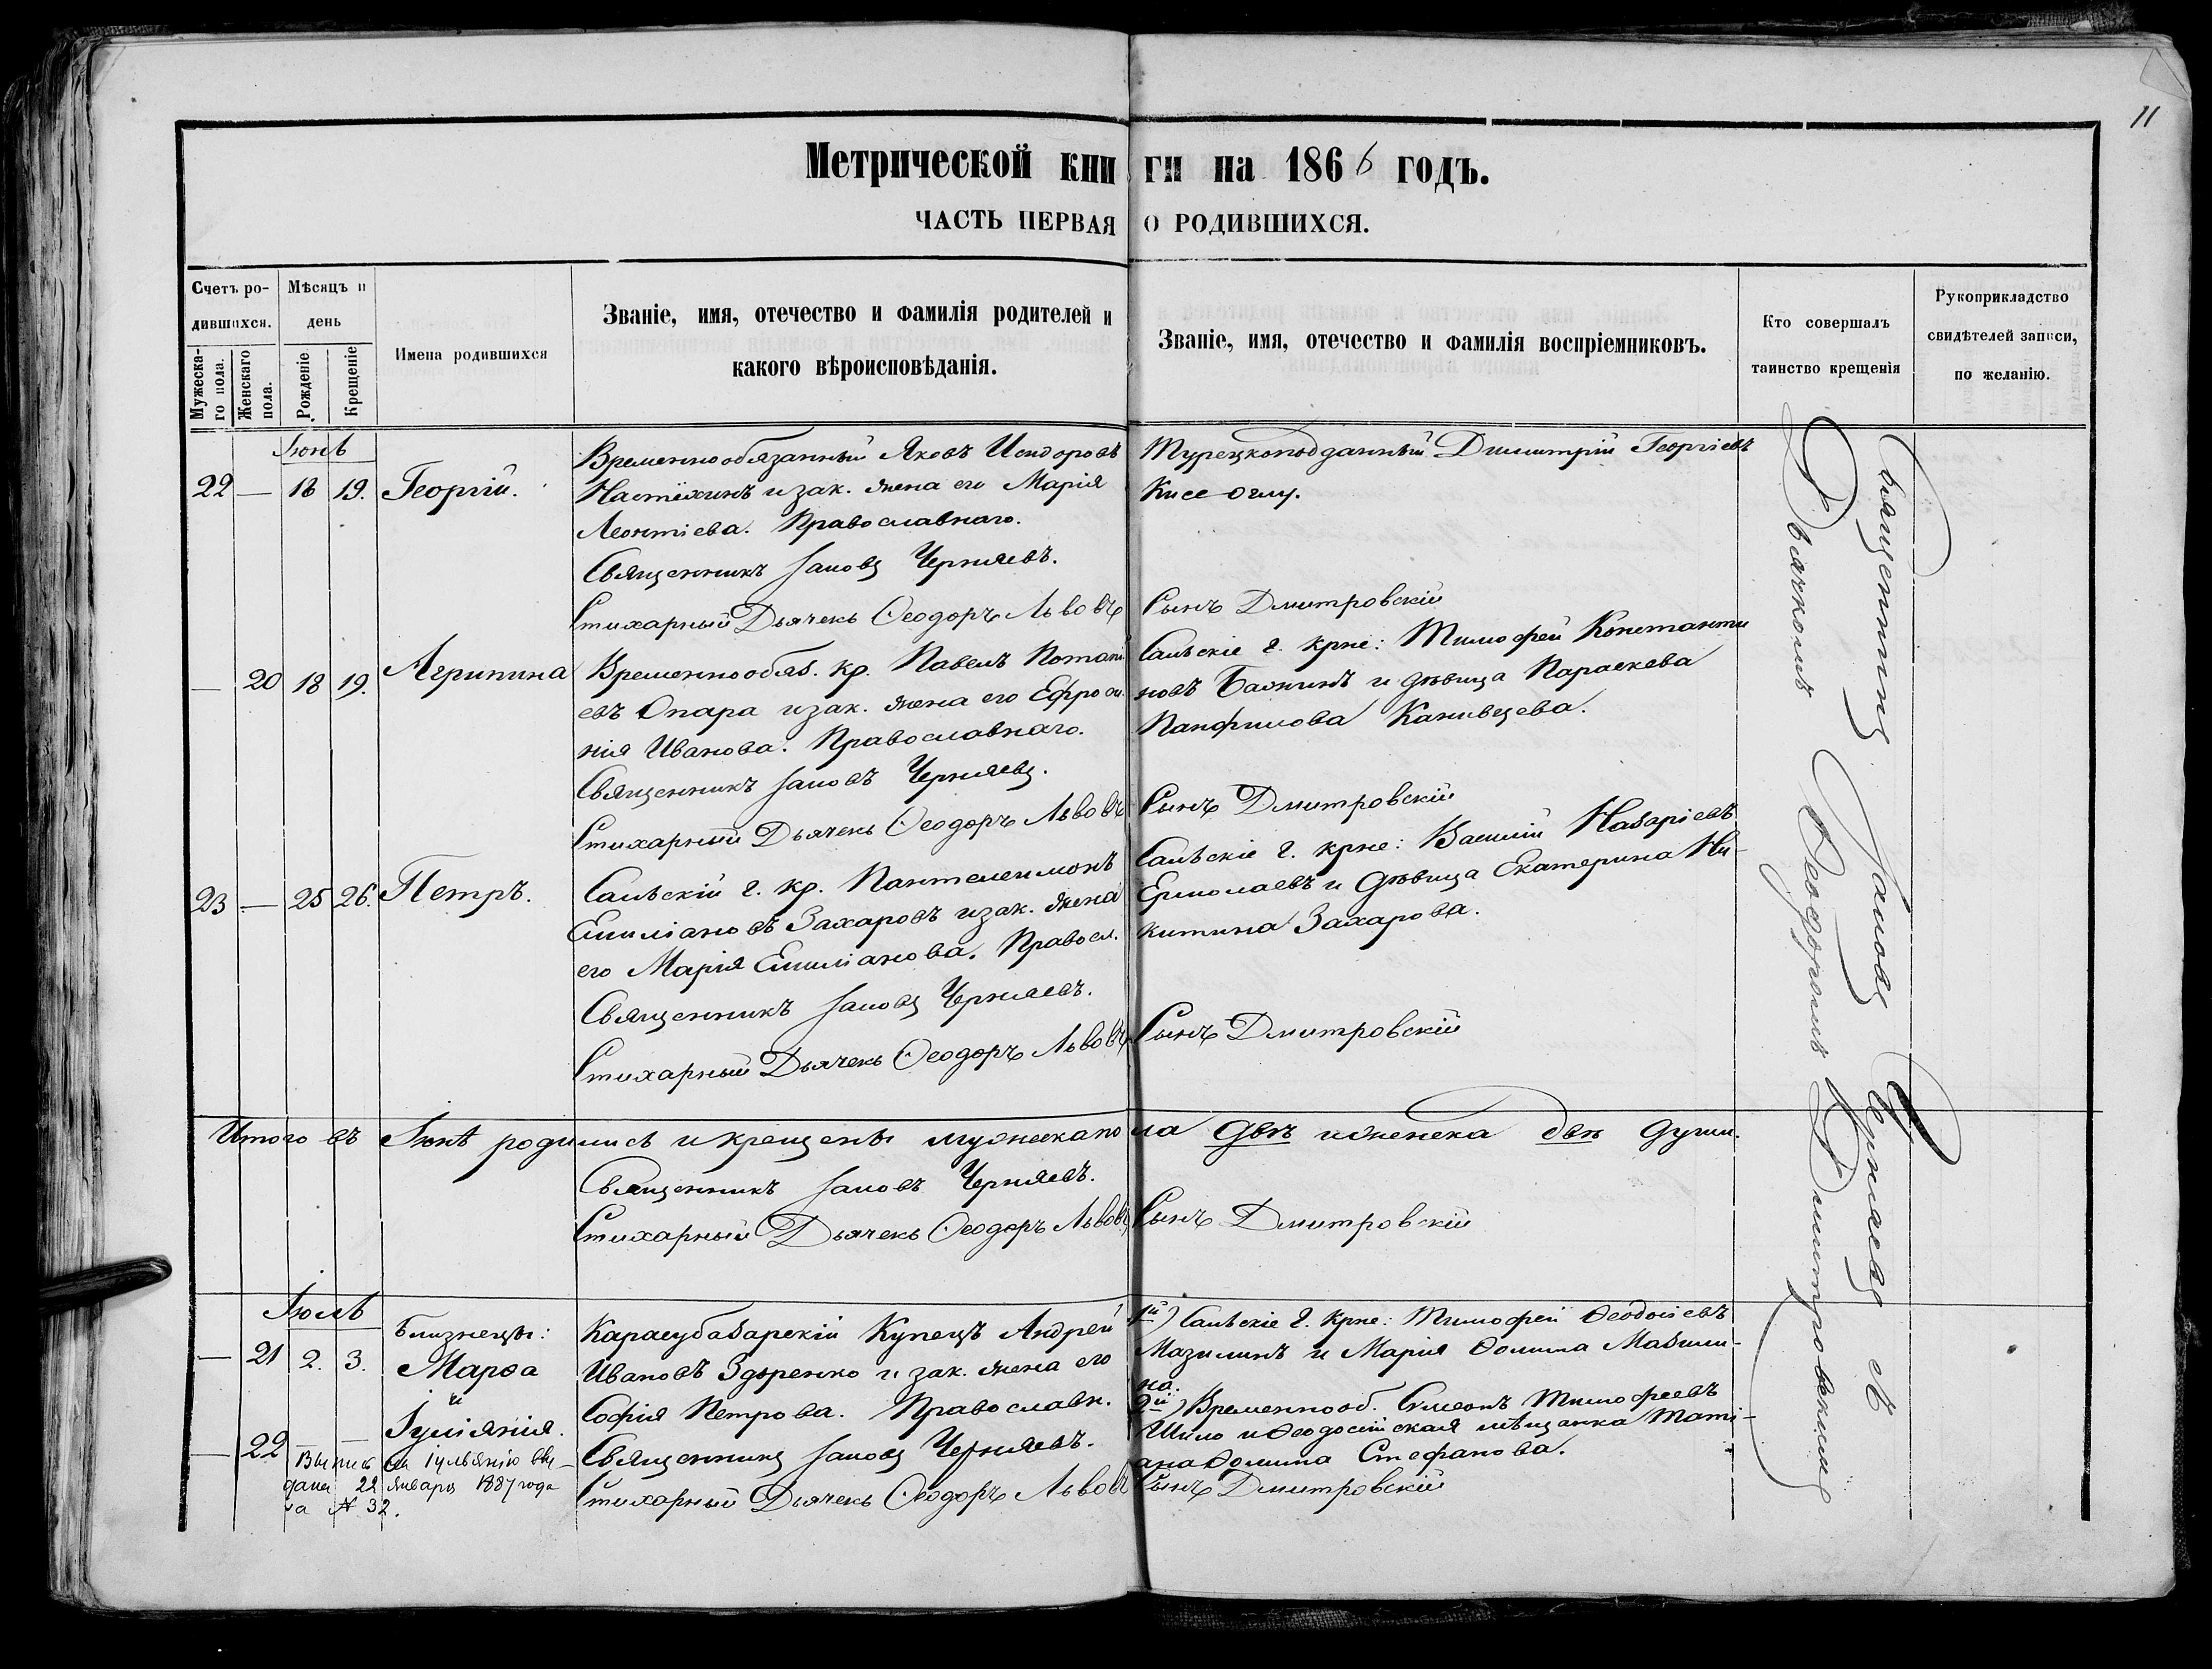 11
Метрической книги на 1866 годъ.
ЧАСТЬ ПЕРВАЯ О РОДИВШИХСЯ.
Счетъ родившихся.
Мужескаго пола.
Женскаго пола.
Мѣсяцъ и день
Рожденіе
Крещеніе
Имена родившихся
Званіе, имя, отечество и фамилія родителей и
какого вѣроисповѣданія.
Званіе, имя, отечество и фамилія воспріемниковъ.
Кто совершалъ
таинство крещенія
Рукоприкладство
свидѣтелей записи,
по желанію.
Іюнь
22 — 18 19. Георгій.
Временнообязанный Яковъ Исидоровъ
Настёхинъ и зак. жена его Марія
Леонтіева. Православнаго.
Священникъ Іаковъ Черняевъ.
Стихарный Дьячекъ Ѳеодоръ Львовъ Сынъ Дмитровскій
Турецкоподданный Димитрій Георгіевъ
Кисе-Оглу.
— 20 18 19. Агрипина
Временнообяз. кр. Павелъ Потапі
евъ Опара и зак. жена его Ефроси
нія Иванова. Православнаго.
Священникъ Іаковъ Черняевъ.
Стихарный Дьячекъ Ѳеодоръ Львовъ Сынъ Дмитровскій
Сальскіе г. крне: Тимофей Константи
новъ Баснинъ и дѣвица Параскева
Панфилова Канивцева.
23 — 25 26. Петръ.
Сальскій г. кр. Пантелеимонъ
Емиліановъ Захаровъ и зак. жена
его Марія Емиліанова. Правосл.
Священникъ Іаковъ Черняевъ.
Стихарный Дьячекъ Ѳеодоръ Львовъ Сынъ Дмитровскій
Сальскіе г. крне: Василій Назаріевъ
Ермолаевъ и дѣвица Екатерина Ни-
китина Захарова.
Итого въ Іюнѣ родились и крещены мужеска пола двѣ и женска двѣ души.
Священникъ Іаковъ Черняевъ.
Стихарный Дьячекъ Ѳеодоръ Львовъ Сынъ Дмитровскій
Іюль
Близнецы:
— 21 2. 3. Марѳа
и
— 22 — — Іуліянія.
Выпись на Іульянію вы-
дана 22 января 1887 года
за № 32.
Карасубазарскій Купецъ Андрей
Ивановъ Здоренко и зак. жена его
Софія Петрова. Православн.
Священникъ Іаковъ Черняевъ.
Стихарный Дьячекъ Ѳеодоръ Львовъ Сынъ Дмитровскій
1й) Сальскіе г. крне: Тимофей Ѳеодосіевъ
Мазилинъ и Марія Ѳомина Мазили-
на.
2й) Временнооб. Симеонъ Тимофеевъ
Шило и Ѳеодосійская мѣщанка Тати-
ана Ѳомина Стефанова.
Священникъ Іаковъ Черняевъ съ
Дьячкомъ Ѳеодоромъ Дмитровскимъ